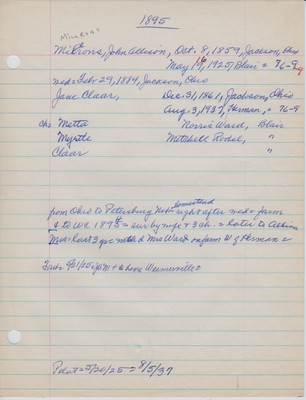 1895
McCrons
McCrona, John Allison, Oct. 8, 1859, Jackson, Ohio
May 16, 1925, Blair = 76-9
md = Feb 29, 1884, Jackson, Ohio
Jane Claar, Dec. 31, 1861, Jackson, Ohio
Aug. 3, 1937, Herman, = 76-9
chs Metta Norris Ward, Blair
Myrtle Mitchell Rosel, "
Claar "
homestead
from Ohio to Petersburg Neb = right after md = farm
& to WC 1895 = surv by wife + 3 ch = later to
Mrs last 3 yrs with d Mrs Ward on farm W of Herman =
Pilot = 5/20/25 = 8/5/37